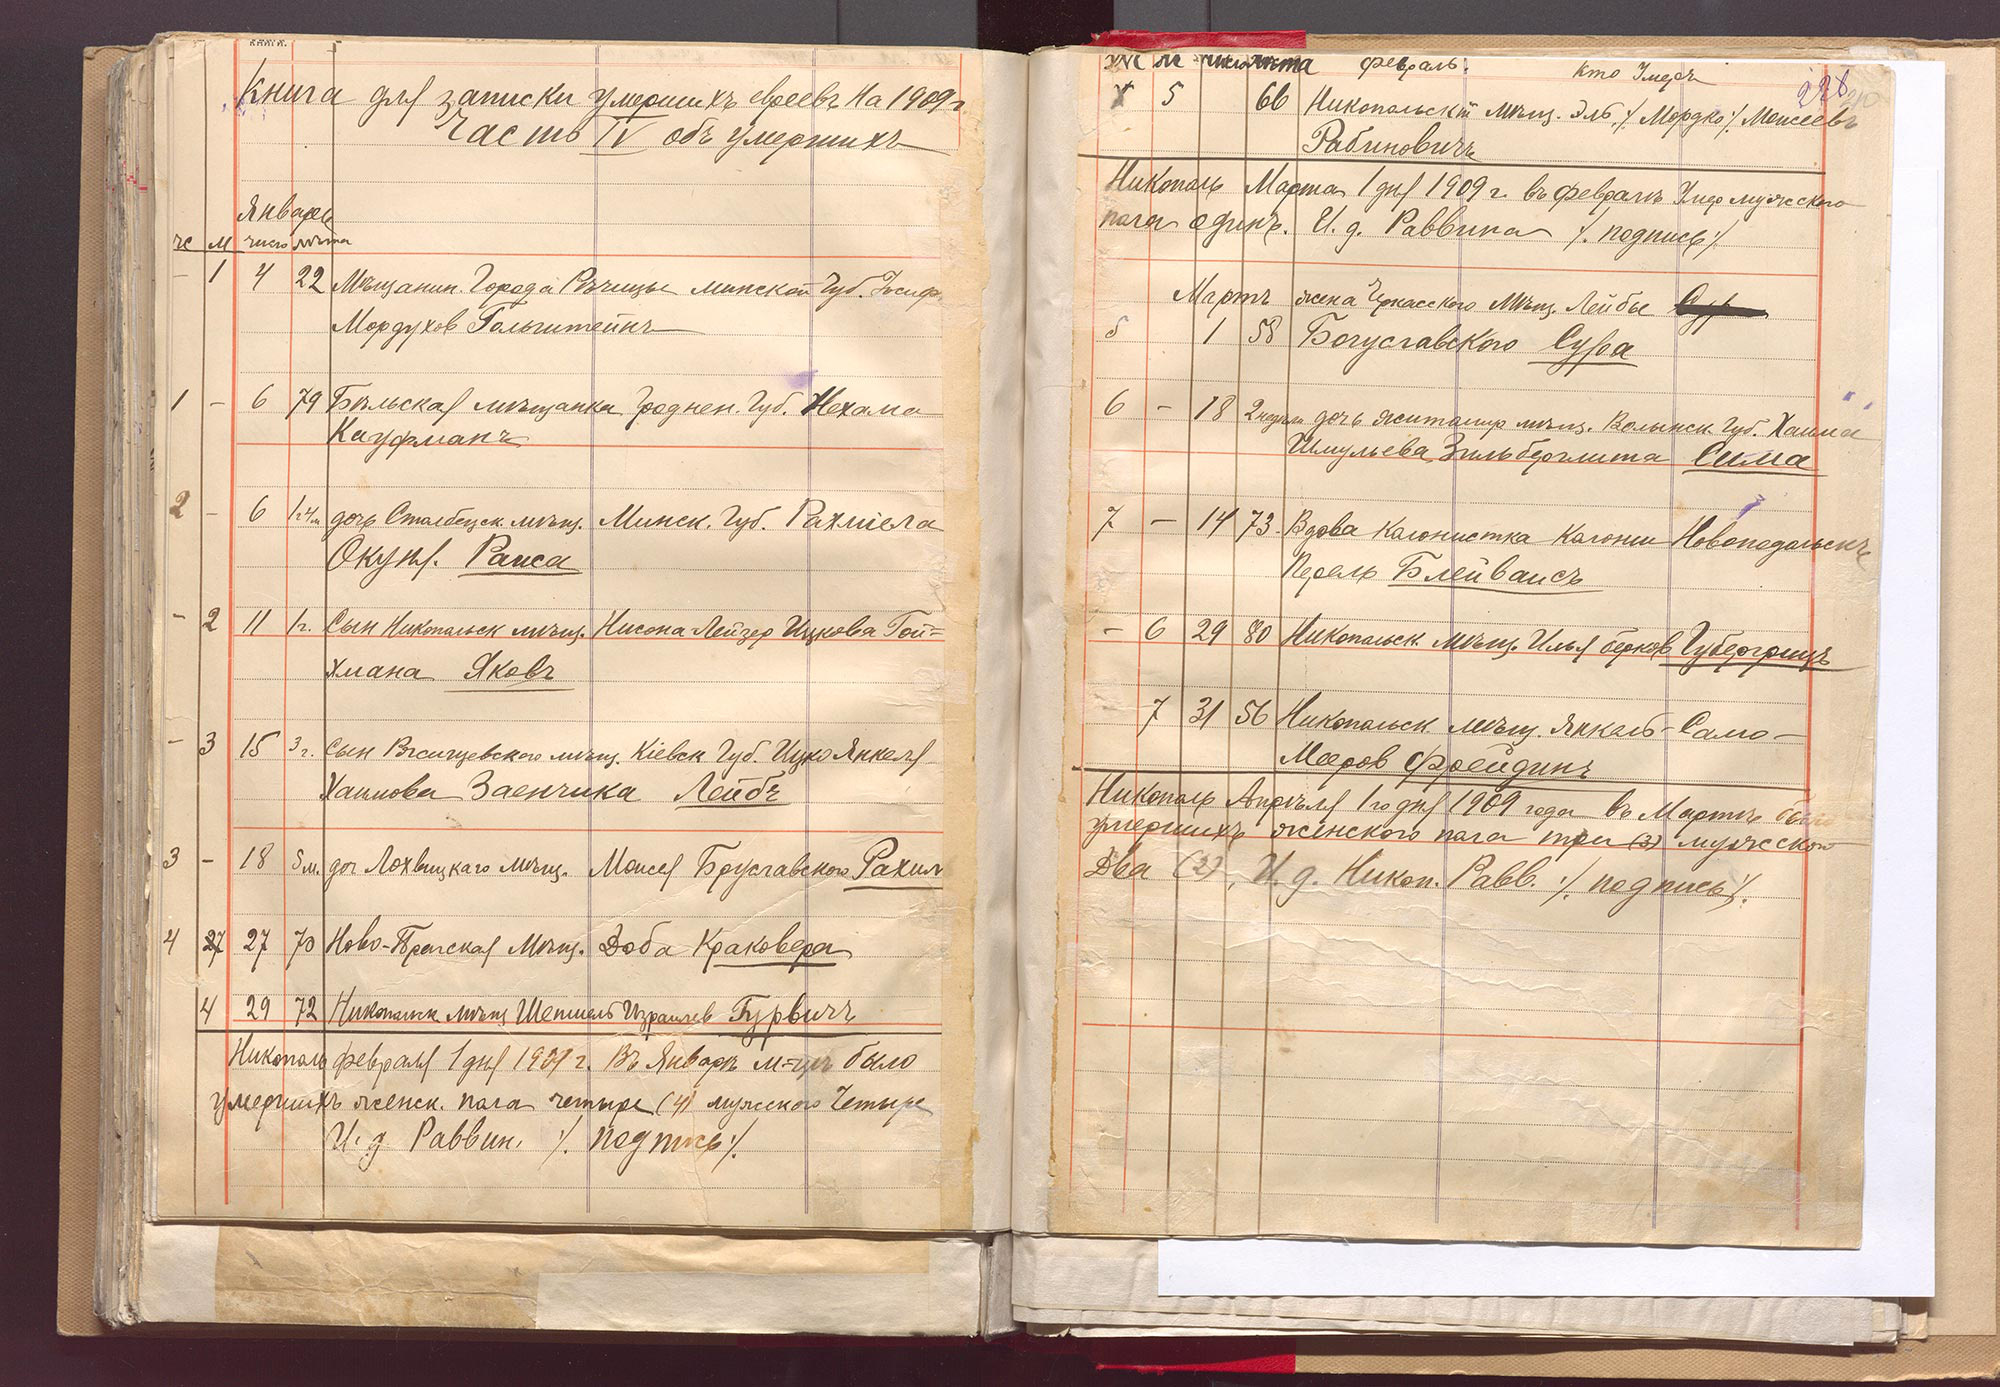 книги.
Книга для записки умершихъ евреевъ на 1909 г
Часть IV объ умершихъ
Январь
ж м число лѣта
– 1 4 22 Мѣщанин. Города Рѣчицы Минской Губ. Іосиф
Мордухов Гольштейнъ
1 – 6 79 Бѣльская мѣщанка Гроднен. Губ. Нехама
Кауфманъ
2 – 6 1 г 4 м дочь Столбецск. мѣщ. Минск. Губ. Рахміела
Окуня. Раиса
– 2 11 1 г. Сын Никопольск мѣщ. Нисона-Лейзер Ицкова Гой=
хмана Яковъ
– 3 15 3 г. Сын мѣщ. Кіевск Губ. Ицко Янкеля
Хаимова Заенчика Лейбъ
3 – 18 5 м. доч Лохвицкаго мѣщ. Моисея Брусловского Рахил
4 27 27 70 Ново-Прагская Мѣщ. Доба Краковера
4 29 72 Никопольск мѣщ Шепшель Израилев Гурвичъ
Никополь февраля 1 дня 1909 г. Въ Январѣ м-цѣ было
умершихъ женск. пола четыре (4) мужского Четыре
И. д Раввин. ./. подпись ./.
Ж М число лѣта февраль. кто Умеръ
228
5 66 Никопольскій мѣщ. Эль ./. Мордко ./. Моисеевъ
Рабиновичъ
Никополь Марта 1 дня 1909 г. въ февралѣ Умер мужеского
пола одинъ. И. д. Раввина ./. подпись ./.
Мартъ жена Черкасского Мѣщ. Лейбы
5 1 58 Богуславского Сура
6 – 18 2 недели дочь Житомир мѣщ. Волынск. Губ. Хаима
Шмульева Зильберглита Сима
7 – 14 73 Вдова Колонистка Колоніи Новоподольскъ
Перель Блейвайсъ
– 6 29 80 Никопольск. мѣщ. Илья берков Губергрицъ
7 31 56 Никопольск. мѣщ. Янкель-Само-
Мееров Фрейдинъ
Никополь Апрѣля 1го дня 1909 года въ Мартѣ было
умершихъ женского пола три (3) мужеского
Два (2), И. д. Никоп. Равв. ./. подпись ./.